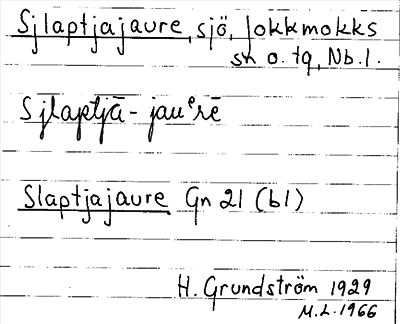 Sjlaptjajaure, sjö, Jokkmokks
sn o. tg, Nb.l.
Sjlaptjā-jauᵉrē
Slaptjajaure Gn 21 (b1)
H. Grundström 1929
M.L. 1966